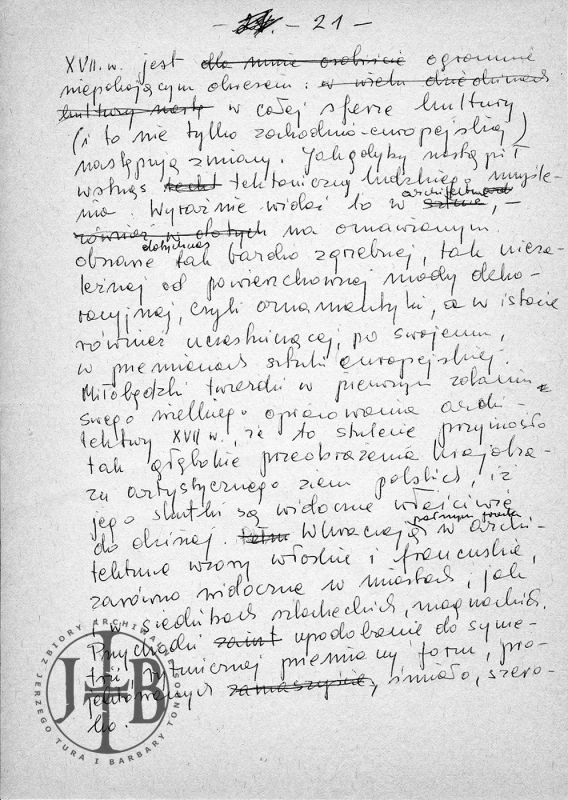 - 21. - 21 -
XVII. w. jest dla mnie osobiście ogromnie
niepokojącym okresem: w wielu dziedzinach
kultury nastę w całej sferze kultury
(i to nie tylko zachodnio-europejskiej)
następują zmiany. Jak gdyby nastąpił
wstrząs tektoniczny ludzkiego myśle-
nia. Wyraźnie widać to w sztuce, architekturze, -
również w dotych na omawianym
obszarze dotychczas tak bardzo zgrzebnej, tak nieza-
leżnej od powierzchownej mody deko-
racyjnej, czyli ornamentyki, a w istocie
również uczestniczącej, po swojemu,
w przemianach sztuki europejskiej.
Miłobędzki twierdzi w pierwszym zdaniu
swego wielkiego opracowania archi-
tektury XVII w., że to stulecie przyniosło
tak głębokie przeobrażenia krajobra-
zu artystycznego ziem polskich, iż
jego skutki są widoczne właściwie
do dzisiaj. Wkraczają w archi-
tekturę wzory włoskie i francuskie,
zarówno widoczne w miastach, jak
i w siedzibach szlacheckich, magnackich.
Przychodzi zaist upodobanie do syme-
trii, rytmicznej przemiany form, pro-
jektowanych zamaszyście, śmiało, szero-
ko.
ZBIORY ARCHIWALNE
JERZEGO TURA I BARBARY TONDOS
JTB